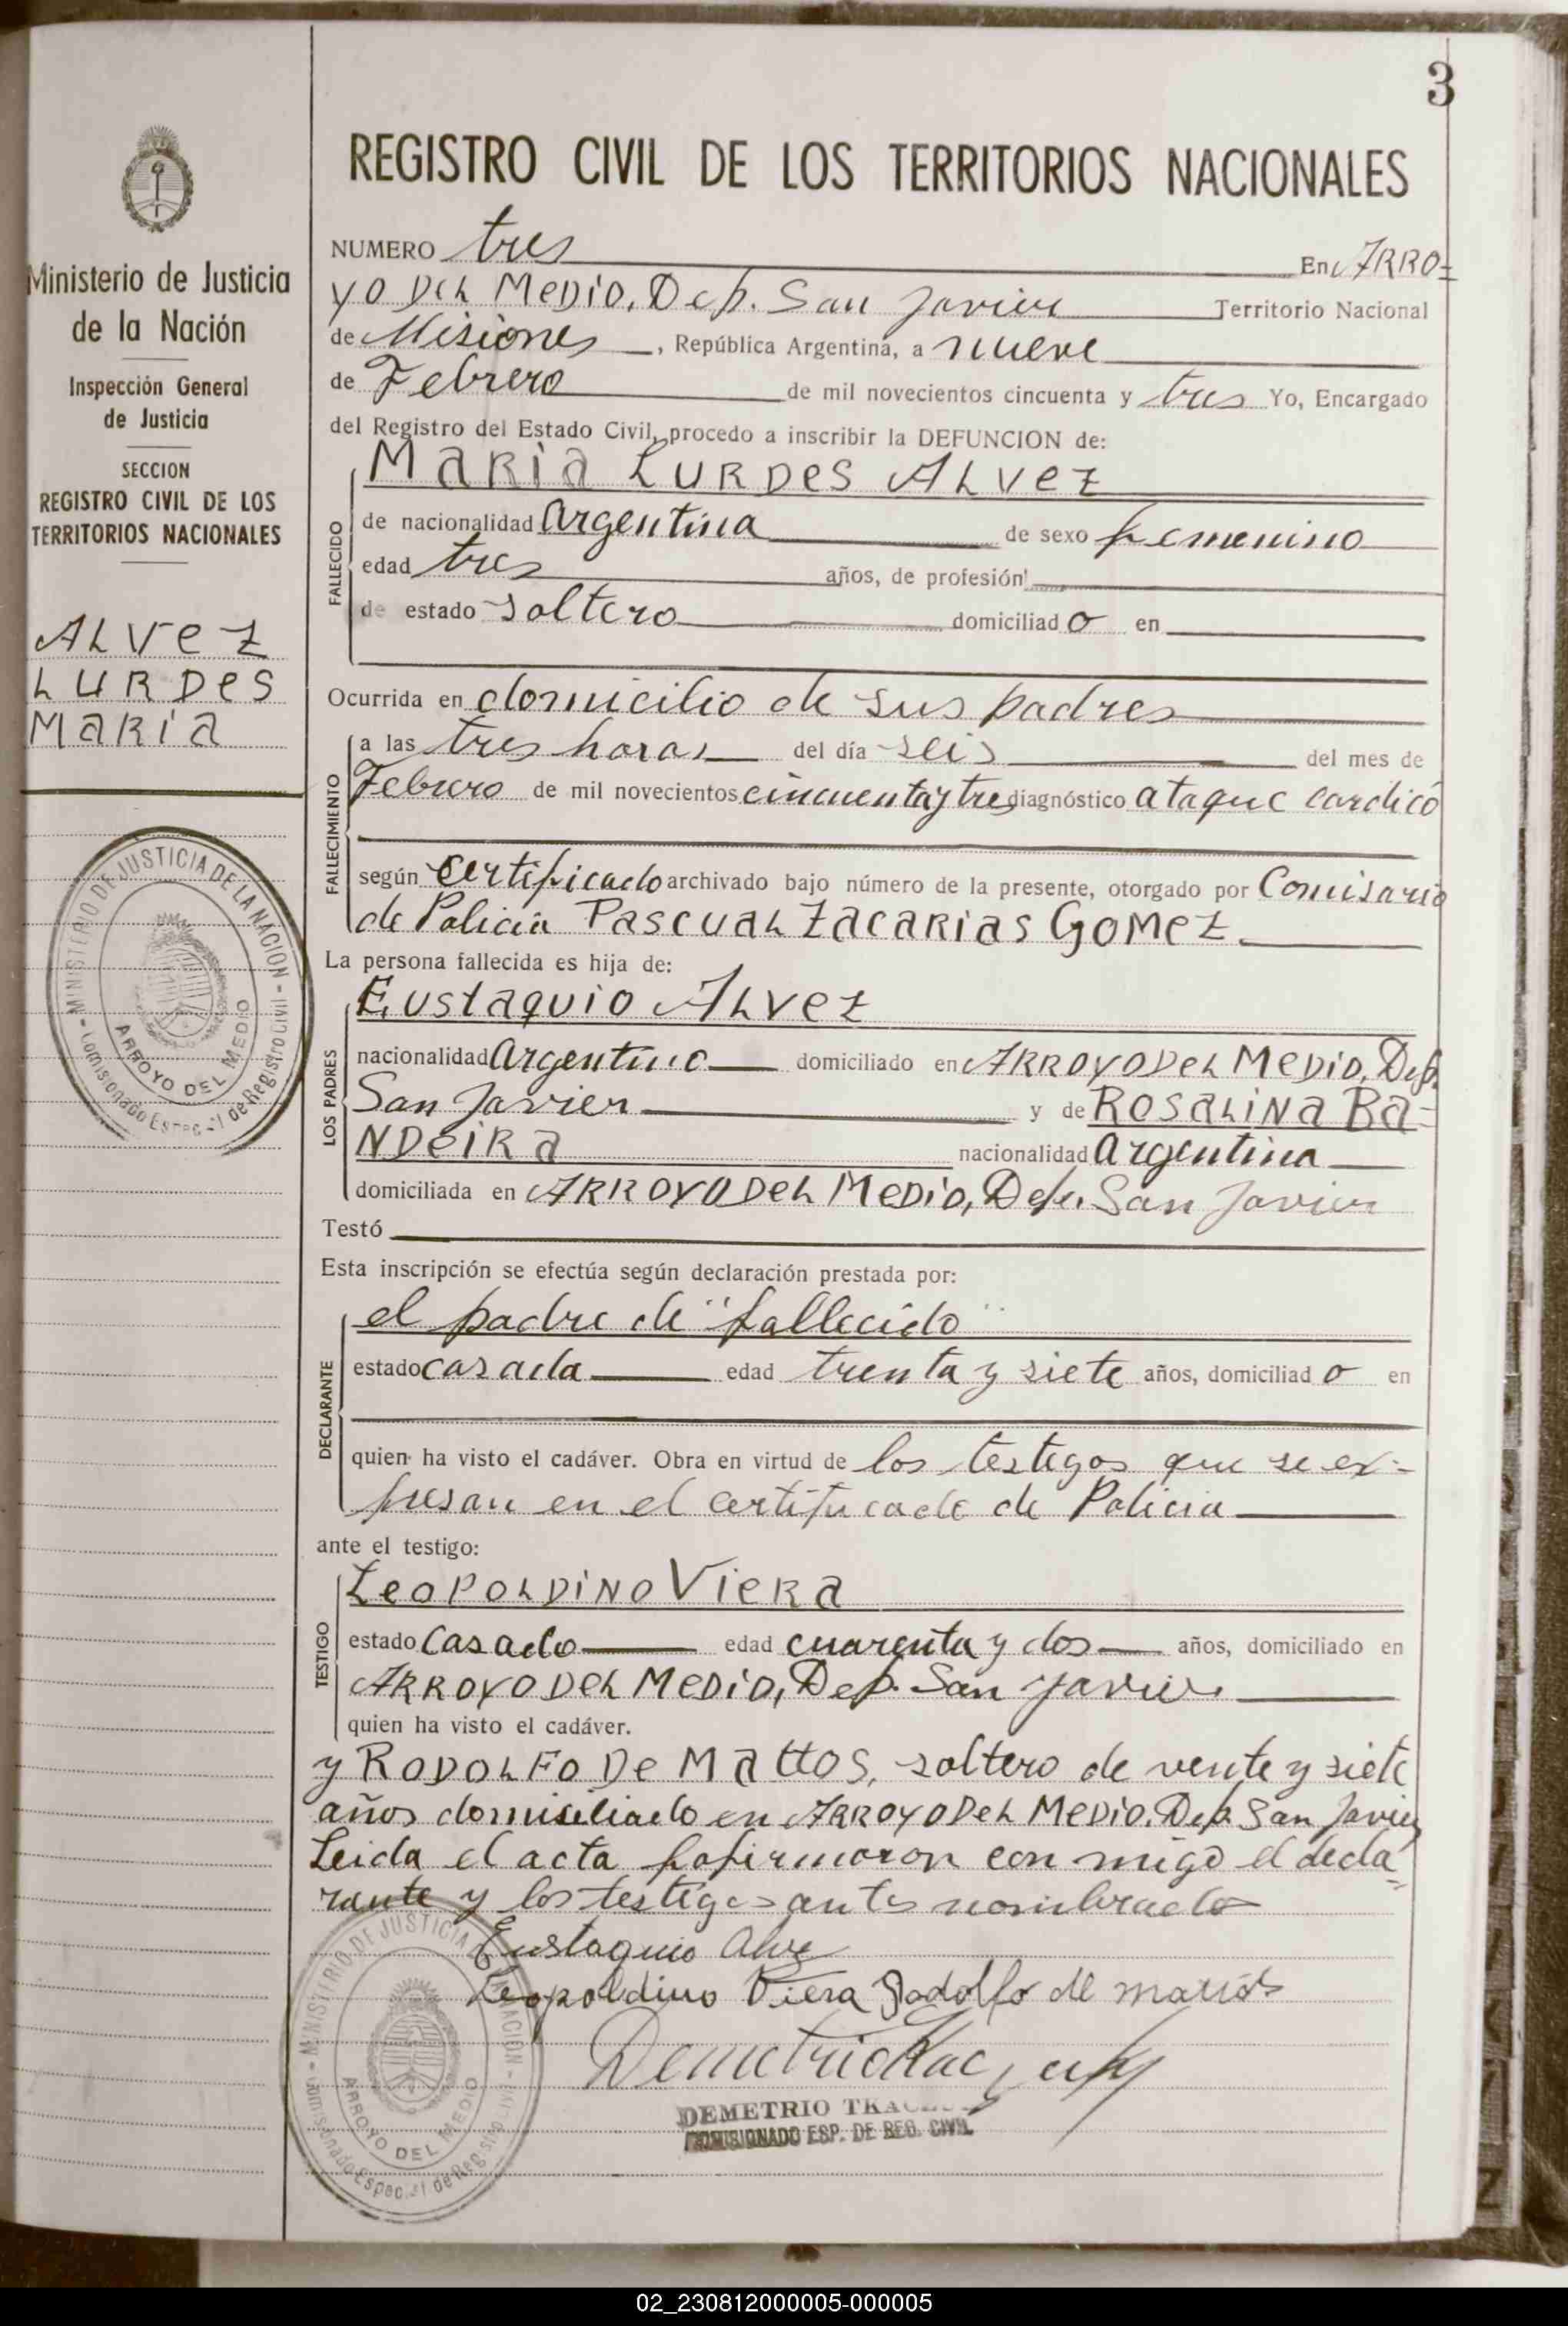 3
REGISTRO CIVIL DE LOS TERRITORIOS NACIONALES
Ministerio de Justicia
de la Nación
Inspección General
de Justicia
SECCION
REGISTRO CIVIL DE LOS
TERRITORIOS NACIONALES
ALVEZ
LURDES
MARIA
MINISTERIO DE JUSTICIA DE LA NACION
ARROYO DEL MEDIO
NUMERO tres En ARRO=
YO DEL MEDIO, Dep. San Javier Territorio Nacional
de Misiones, República Argentina, a nueve
de Febrero de mil novecientos cincuenta y tres Yo, Encargado
del Registro del Estado Civil, procedo a inscribir la DEFUNCION de:
FALLECIDO
MARIA LURDES ALVEZ
de nacionalidad Argentina de sexo femenino
edad tres años, de profesión
de estado soltero domiciliado en
Ocurrida en domicilio de sus padres
FALLECIMIENTO
a las tres horas del día seis del mes de
Febrero de mil novecientos cincuenta y tres diagnóstico ataque cardicó
según certificado archivado bajo número de la presente, otorgado por Comisario
de Policía PASCUAL ZACARIAS GOMEZ
La persona fallecida es hija de:
LOS PADRES
EUSTAQUIO ALVEZ
nacionalidad Argentino domiciliado en ARROYO DEL MEDIO, Dep.
San Javier y de ROSALINA BA=
NDEIRA nacionalidad Argentina
domiciliada en ARROYO DEL MEDIO, Dep. San Javier
Testó
Esta inscripción se efectúa según declaración prestada por:
DECLARANTE
el padre de "fallecido"
estado casada edad trenta y siete años, domiciliado en
quien ha visto el cadáver. Obra en virtud de los testigos que se ex-
presan en el certificado de Policia
ante el testigo:
TESTIGO
LEOPOLDINO VIERA
estado Casado edad cuarenta y dos años, domiciliado en
ARROYO DEL MEDIO, Dep. San Javier
quien ha visto el cadáver.
y RODOLFO DE MATTOS, soltero de vente y siete
años domisiliado en ARROYO DEL MEDIO, Dep. San Javier
Leida el acta la firmaron con migo el decla=
rante y los testigos antes nombrado
Eustaquio Alvez
Leopoldino Viera Rodolfo de mattos
DEMETRIO
COMISIONADO ESP. DE REG. CIVIL
MINISTERIO DE JUSTICIA DE LA NACION
ARROYO DEL MEDIO
02_230812000005-000005